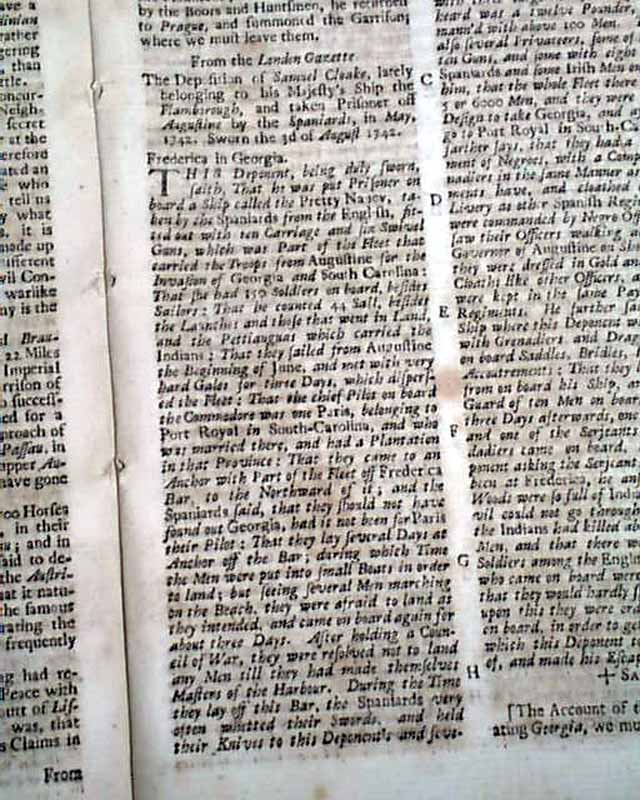 ave a
inian
rather
gering
, than
ttle.
oncur-
Neigh-
secret
r at the
erefore
ated an
who
tell us
y what
s, it is
made up
ufficient
vil Con-
warlike
ny is the
al Brau-
22 Miles
Imperial
rrison of
o succeff-
ned for a
proach of
Passau, in
upper Au-
have gone
200 Horses
in their
au; and in
said to de-
the Austri-
hat it natu-
the famous
rating the
frequently
ag had re-
Peace with
ount of Lis-
was, that
s Claims in
From
by the Boors and Huntsmen, he returned
to Prague, and summoned the Garrison;
where we must leave them.
From the London Gazette
The Deposition of Samuel Cloake, lately
belonging to his Majesty's Ship the
Flamborough, and taken Prisoner off
Augustine by the Spaniards, in May,
1742. Sworn the 3d of August 1742.
Frederica in Georgia.
THIS Deponent, being duly sworn,
saith, That he was put Prisoner on
board a Ship called the Pretty Nancy, ta-
ken by the Spaniards from the English, fit-
ted out with ten Carriage and six Swivel
Guns, which was Part of the Fleet that
carried the Troops from Augustine for the
Invasion of Georgia and South Carolina:
That she had 150 Soldiers on board, besides
Sailors: That he counted 44 Sail, besides
the Launches and those that went in Land,
and the Pettiaguas which carried the
Indians: That they sailed from Augustine
the Beginning of June, and met with very
hard Gales for three Days, which dispers-
ed the Fleet: That the chief Pilot on board
the Commodore was one Paris, belonging to
Port Royal in South-Carolina, and who
was married there, and had a Plantation
in that Province: That they came to an
Anchor with Part of the Fleet off Frederica
Bar, to the Northward of it; and the
Spaniards said, that they should not have
found out Georgia, had it not been for Paris
their Pilot: That they lay several Days at
Anchor off the Bar; during which Time
the Men were put into small Boats in order
to land; but seeing several Men marching
on the Beach, they were afraid to land as
they intended, and came on board again for
about three Days. After holding a Coun-
cil of War, they were resolved not to land
any Men till they had made themselves
Masters of the Harbour. During the Time
they lay off this Bar, the Spaniards very
often whetted their Swords, and held
their Knives to this Deponent's and seve-
C
D
E
F
G
H
heard was a twelve Pounder,
mann'd with above 100 Men.
also several Privateers, some of
ten Guns, and some with eight
Spaniards and some Irish Men on
him, that the whole Fleet there
5 or 6000 Men, and they were
Design to take Georgia, and
go to Port Royal in South-C
farther says, that they had a
ment of Negroes, with a Comm
nadiers in the same Manner as
ments have, and cloathed
Livery as other Spanish Regi
were commanded by Negro Of
saw their Officers walking
Governor of Augustine on Sho
they were dressed in Gold and
Cloaths like other Officers,
were kept in the same Pay
Regiments. He further sa
Ship where this Deponent w
with Grenadiers and Drag
on board Saddles, Bridles,
Accoutrements: That they
from on board his Ship, a
Guard of ten Men on board
three Days afterwards, one
and one of the Serjeants
dadiers came on board,
ponent asking the Serjeant
been at Frederica, he an
Woods were so full of India
vil could not go through
the Indians had killed a
Men, and that there w
Soldiers among the Engli
who came on board were
that they would hardly
upon this they were or
on board, in order to get
which this Deponent to
of, and made his Escap
+ SA
[The Account of t
ating Georgia, we mu